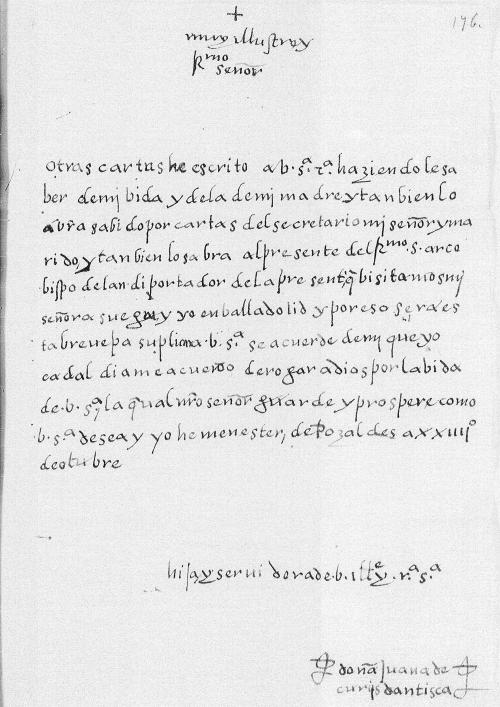 176.
+
muy illustre y
Rmo
señor
otras cartas he escrito a b. s.ª r.ª haziendo le sa
ber de mj bida y de la de mi madre y tan bien lo
abra sabido por cartas del secretario mj señor y ma
rido, y tan bien lo sabra al presente del Rmo. s. arço
bispo de landi portador de la presente q bisitamos mj
señora suegra y yo en balladolid y por eso sera es
ta breve pa suplicar a b. s.ª se acuerde de mi que yo
cada l dia me acuerdo de rogar a dios por la bida
de b. s.ª la qual nro señor guarde y prospere como
b. s.ª desea y yo he menester, de Pozaldes a XXIIIIº
de otubre
hija y servidora de b. illᵉ y. r.ª s.ª
doña Juana de
curijs dantisca